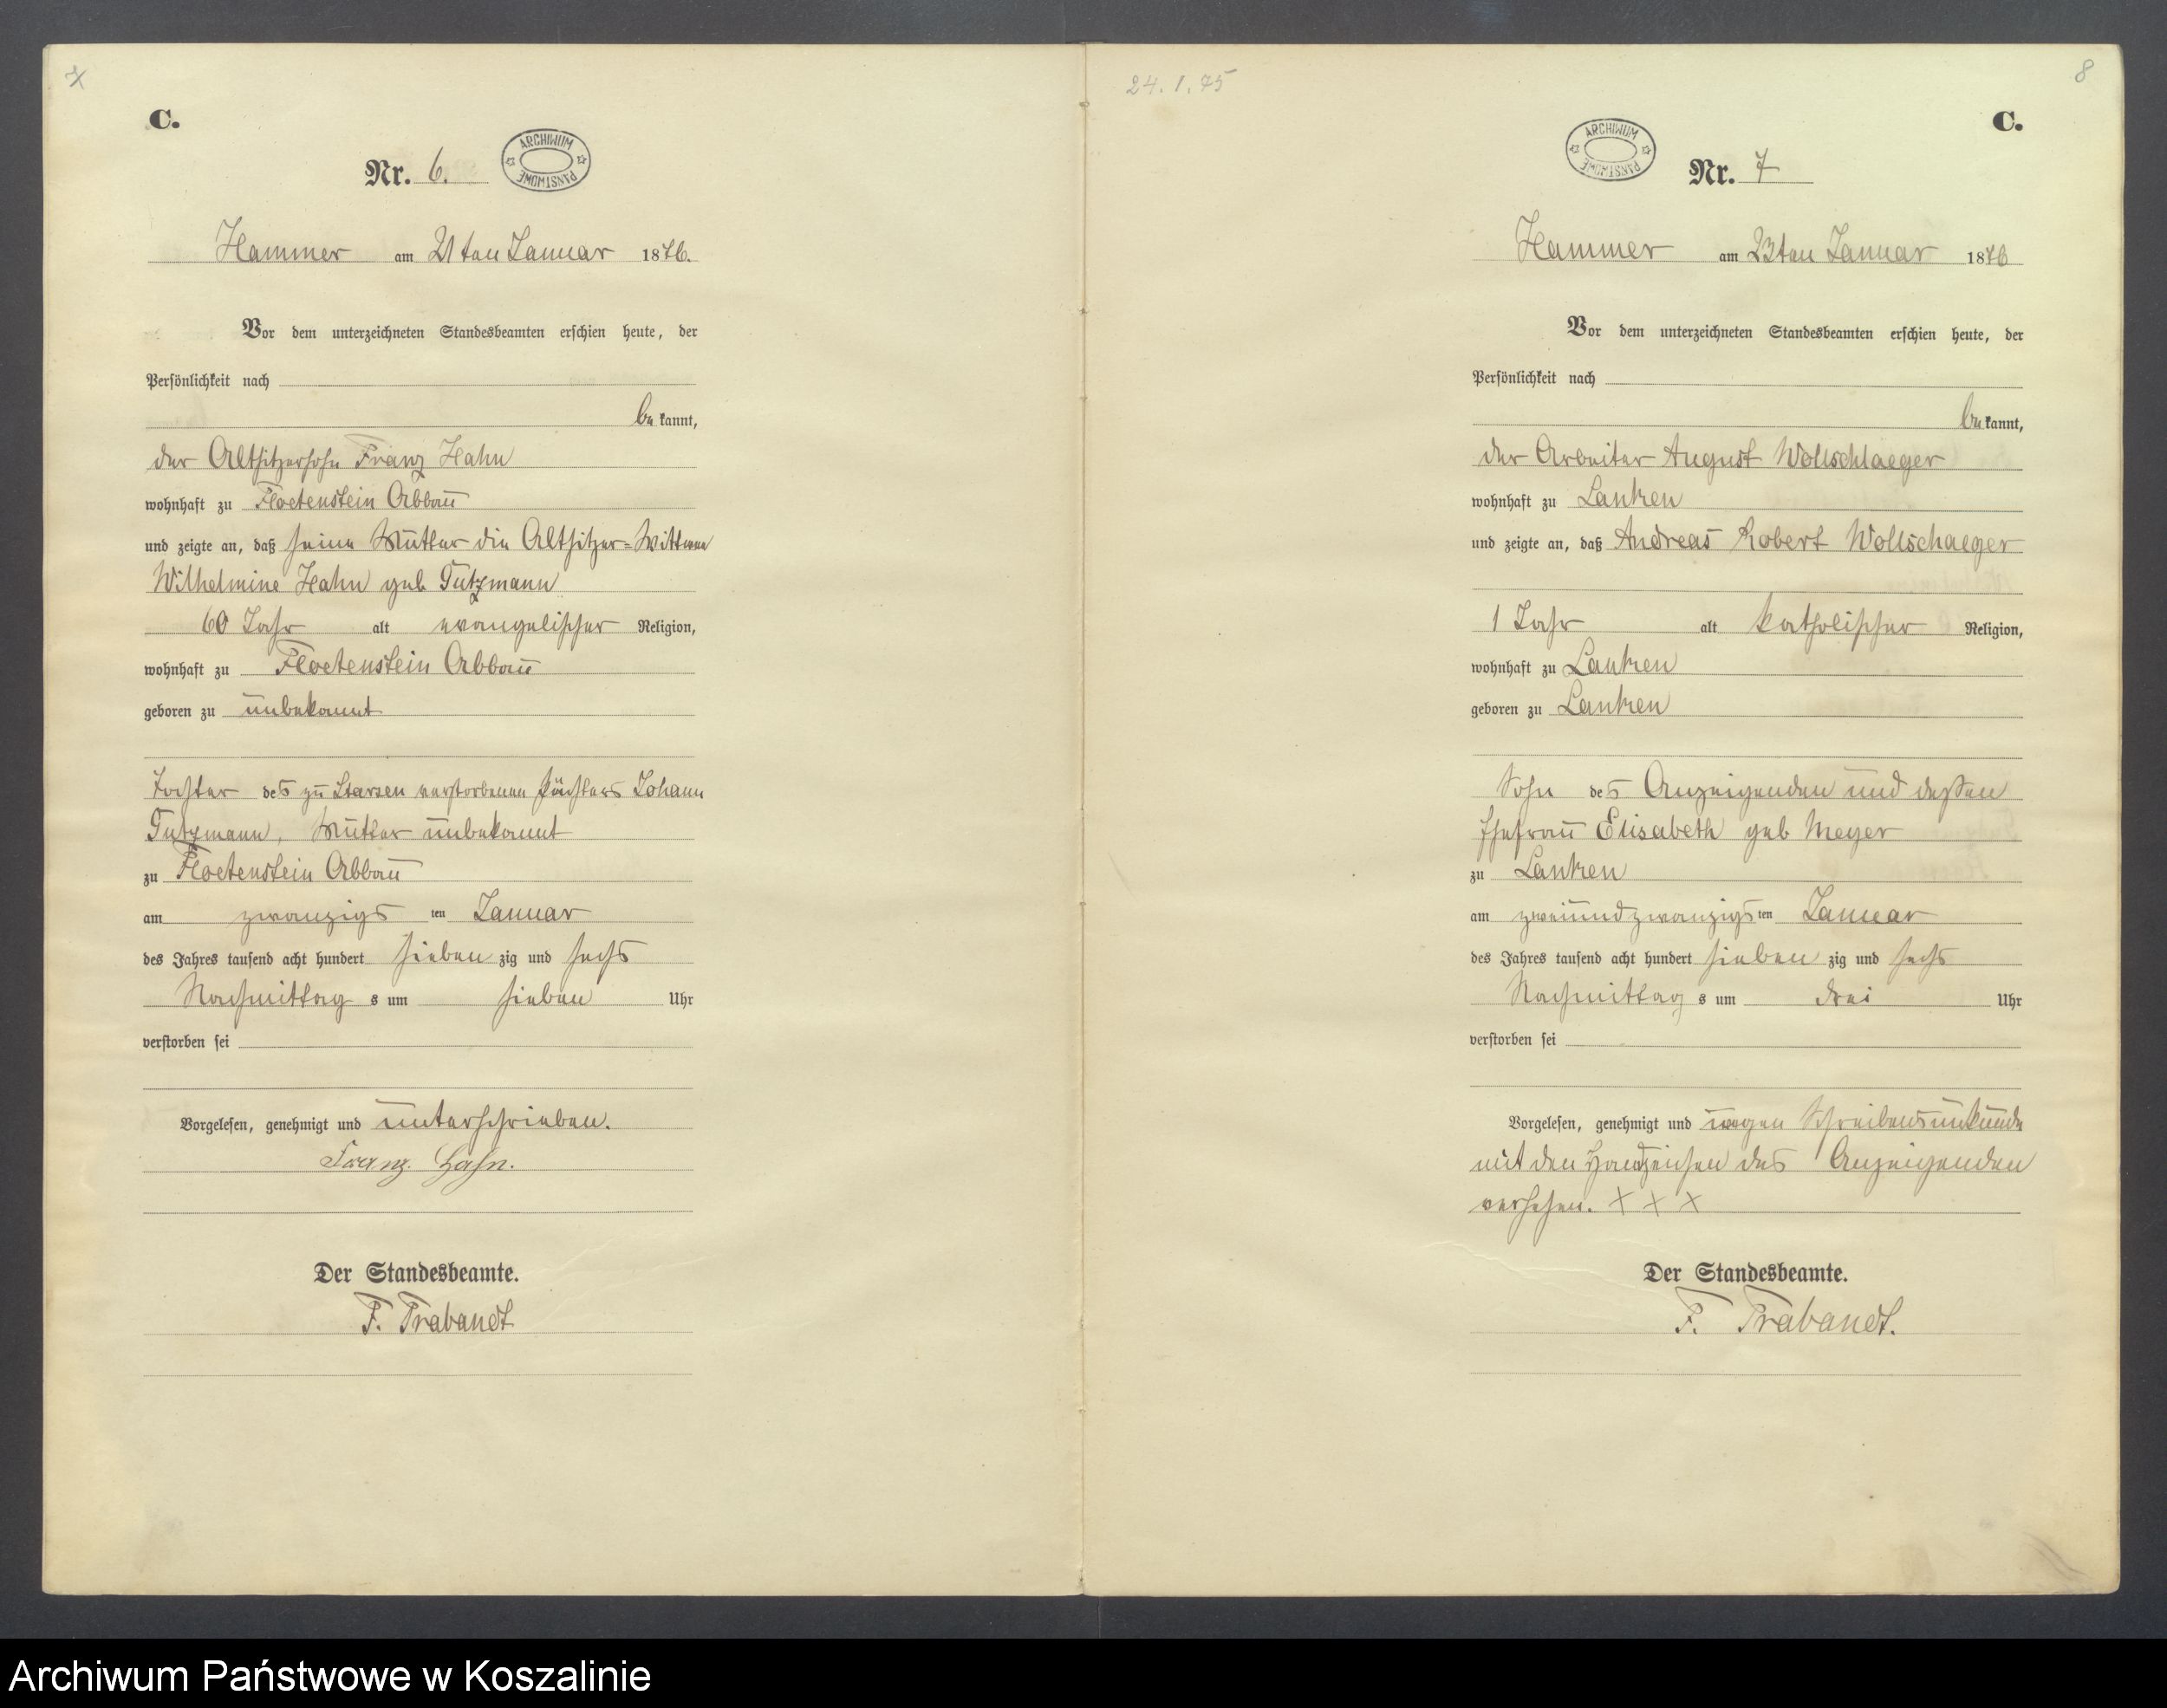 C.
Nr. 6.
ARCHIWUM PAŃSTWOWE
Hammer am 21ten Januar 1876.
Vor dem unterzeichneten Standesbeamten erschien heute, der
Persönlichkeit nach
be kannt,
der Altsitzersohn Franz Hahn
wohnhaft zu Floetenstein Abbau
und zeigte an, daß seine Mutter die Altsitzer=Wittwe
Wilhelmine Hahn geb Tutzmann
60 Jahr alt evangelischer Religion,
wohnhaft zu Floetenstein Abbau
geboren zu unbekannt
Tochter des zu Starsen verstorbenen Pächters Johann
Tutzmann, Mutter unbekannt
zu Floetenstein Abbau
am zwanzigs ten Januar
des Jahres tausend acht hundert sieben zig und sechs
Nachmittag s um sieben Uhr
verstorben sei
Vorgelesen, genehmigt und unterschrieben.
Franz. Hahn.
Der Standesbeamte.
F. Trabandt
24. 1. 75
8
C.
ARCHIWUM PAŃSTWOWE
Nr. 7
Hammer am 23ten Januar 1876
Vor dem unterzeichneten Standesbeamten erschien heute, der
Persönlichkeit nach
be kannt,
der Arbeiter August Wollschlaeger
wohnhaft zu Lanken
und zeigte an, daß Andreas Robert Wollschaeger
1 Jahr alt katholischer Religion,
wohnhaft zu Lanken
geboren zu Lanken
Sohn des Anzeigenden und dessen
Ehefrau Elisabeth geb Meyer
zu Lanken
am zweiundzwanzigs ten Januar
des Jahres tausend acht hundert sieben zig und sechs
Nachmittag s um drei Uhr
verstorben sei
Vorgelesen, genehmigt und wegen Schreibensunkunde
mit den Handzeichen des Anzeigenden
versehen. + + +
Der Standesbeamte.
F. Trabandt.
Archiwum Państwowe w Koszalinie